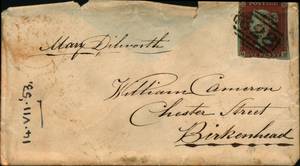 POSTAGE
May Dilworth
William Cameron
Chester Street
Birkenhead
14.VII.53.